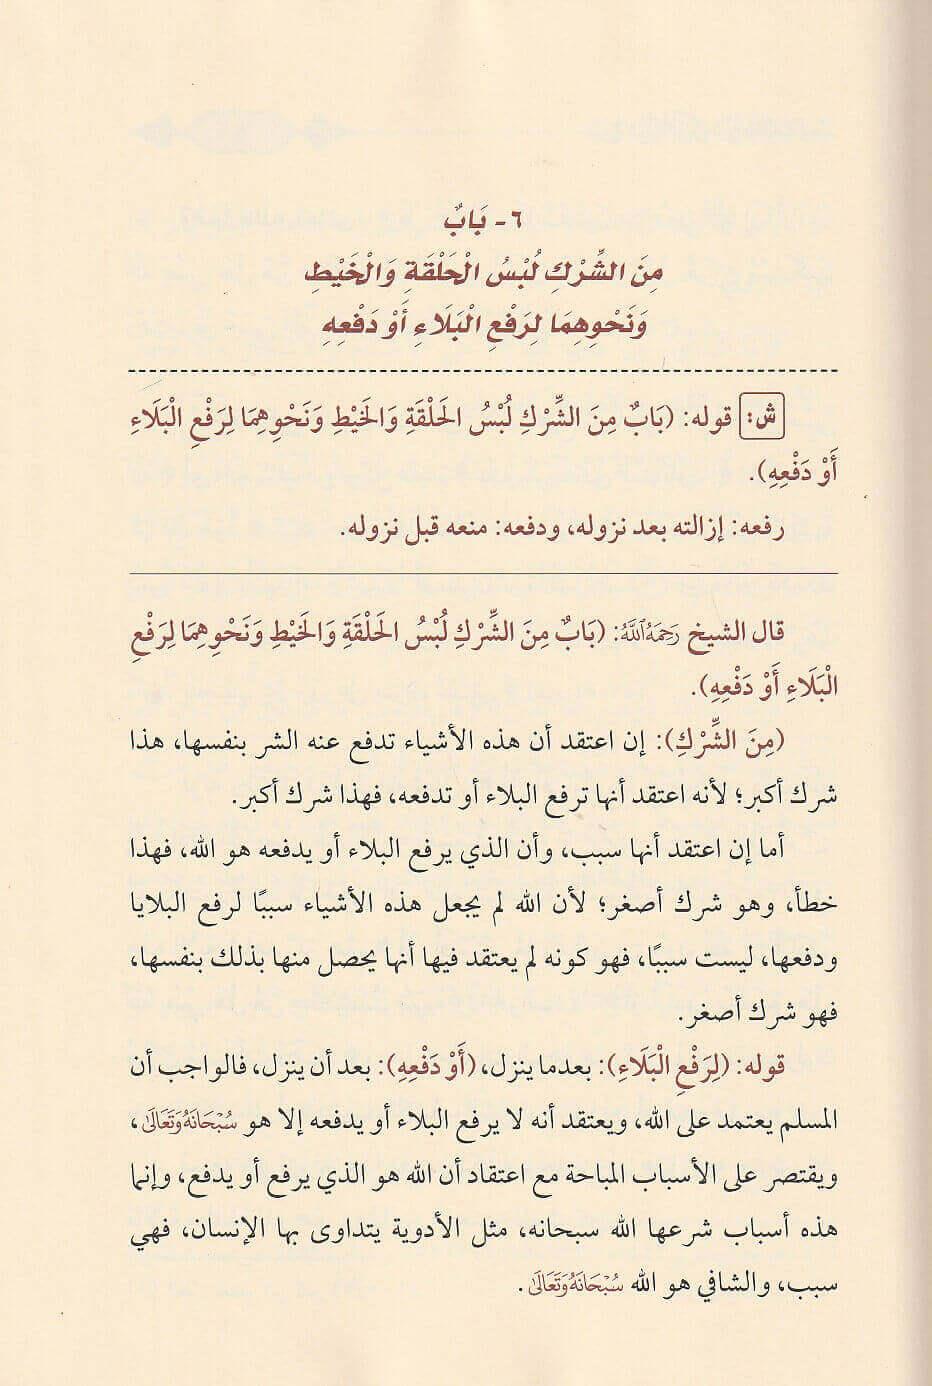 ٦- بَابٌ
مِنَ الشِّرْكِ لُبْسُ الْحَلْقَةِ وَالْخَيْطِ
وَنَحْوِهِمَا لِرَفْعِ الْبَلَاءِ أَوْ دَفْعِهِ
ش: قوله: (بَابٌ مِنَ الشِّرْكِ لُبْسُ الحَلْقَةِ وَالخَيْطِ وَنَحْوِهِمَا لِرَفْعِ الْبَلَاءِ
أَوْ دَفْعِهِ).
رفعه: إزالته بعد نزوله، ودفعه: منعه قبل نزوله.
قال الشيخ رَحِمَهُ اللَّهُ: (بَابٌ مِنَ الشِّرْكِ لُبْسُ الحَلْقَةِ وَالخَيْطِ وَنَحْوِهِمَا لِرَفْعِ
الْبَلَاءِ أَوْ دَفْعِهِ).
(مِنَ الشِّرْكِ): إن اعتقد أن هذه الأشياء تدفع عنه الشر بنفسها، هذا
شرك أكبر؛ لأنه اعتقد أنها ترفع البلاء أو تدفعه، فهذا شرك أكبر.
أما إن اعتقد أنها سبب، وأن الذي يرفع البلاء أو يدفعه هو الله، فهذا
خطأ، وهو شرك أصغر؛ لأن الله لم يجعل هذه الأشياء سببًا لرفع البلايا
ودفعها، ليست سببًا، فهو كونه لم يعتقد فيها أنها يحصل منها بذلك بنفسها،
فهو شرك أصغر.
قوله: (لِرَفْعِ الْبَلَاءِ): بعدما ينزل، (أَوْ دَفْعِهِ): بعد أن ينزل، فالواجب أن
المسلم يعتمد على الله، ويعتقد أنه لا يرفع البلاء أو يدفعه إلا هو سُبْحَانَهُ وَتَعَالَىٰ،
ويقتصر على الأسباب المباحة مع اعتقاد أن الله هو الذي يرفع أو يدفع، وإنما
هذه أسباب شرعها الله سبحانه، مثل الأدوية يتداوى بها الإنسان، فهي
سبب، والشافي هو الله سُبْحَانَهُ وَتَعَالَىٰ.